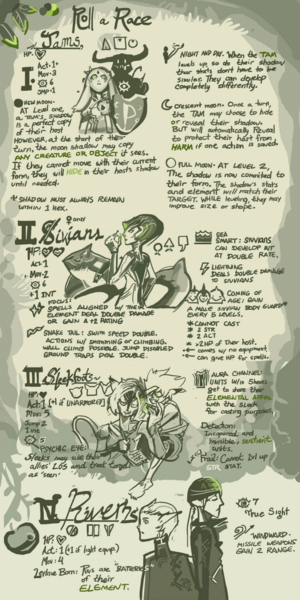 Roll a Race
I
Tams,
HP:
Act: 1
Mov: 3
6
JMP: 1
NEW MOON:
AT Level one,
a TAM's SHADOW
is a perfect copy
of their host
HOWEVER, at the start of their
turn, the moon shadow may copy
ANY CREATURE OR OBJECT it sees.
If they cannot move with their current
form, they will HIDE in their hosts shadow
until needed.
SHADOW MUST ALWAYS REMAIN
WITHIN 1 HEX.
NIGHT AND DAY. When the TAM
levels up, so do their shadow
their stats don't have to be
similar. They can develop
completely differently.
CRESCENT MOON. Once a turn,
the TAM may choose to hide
or reveal their shadow.
BUT will automatically Reveal
to protect their host from
HARM if one action is saved
FULL MOON: AT LEVEL 2,
The shadow is now commited to
their form. The shadow's stats
and element will match their
TARGET, WHILE leveling, they may
improve size or shape.
II
HP:
Act: 1
Mov: 2
6
+1 INT
FOCUS:
SPELLS ALIGNED w/ THEIR
ELEMENT DEAL DOUBLE DAMAGE
OR GAIN A +2 RATING
SNAKE TAIL: SWIM SPEED DOUBLE.
ACTIONS w/ SWIMMING or CLIMBING.
WALL CLIMB POSSIBLE. JUMP DISABLED
GROUND TRAPS DEAL DOUBLE.
SEA
SMART:
CAN DEVELOP INT
AT DOUBLE RATE,
LIGHTNING
DEALS DOUBLE DAMAGE
TO
COMING OF
AGE: GAIN
A MALE BODY GUARD
EVERY 5 LEVELS.
CANNOT CAST
2 STR
2 ACT
1/2 HP of their host,
comes w/ no equipment
can give HP for spells.
III
HP:
Act: 1 (+1 if UNARMORED)
Mov: 5
Jump 2
5
PSYCHIC EYE:
allies' LOS and treat target
as 'seen'
AURA CHANNEL:
UNITS w/in 3 hexes
get to share their
ELEMENTAL AFFIN.
with the
for casting purposes,
Detection:
Incorporeal and
invisible, sentient
units.
Frail: Cannot lvl up
STR STAT.
IV
HP:
Act: 1 (+1 if light equip.)
Mov: 4
Leyline Born: They are "BATTERIES"
of their
ELEMENT.
7
True Sight
WINDWARD:
MISSILE WEAPONS
GAIN 2 RANGE.